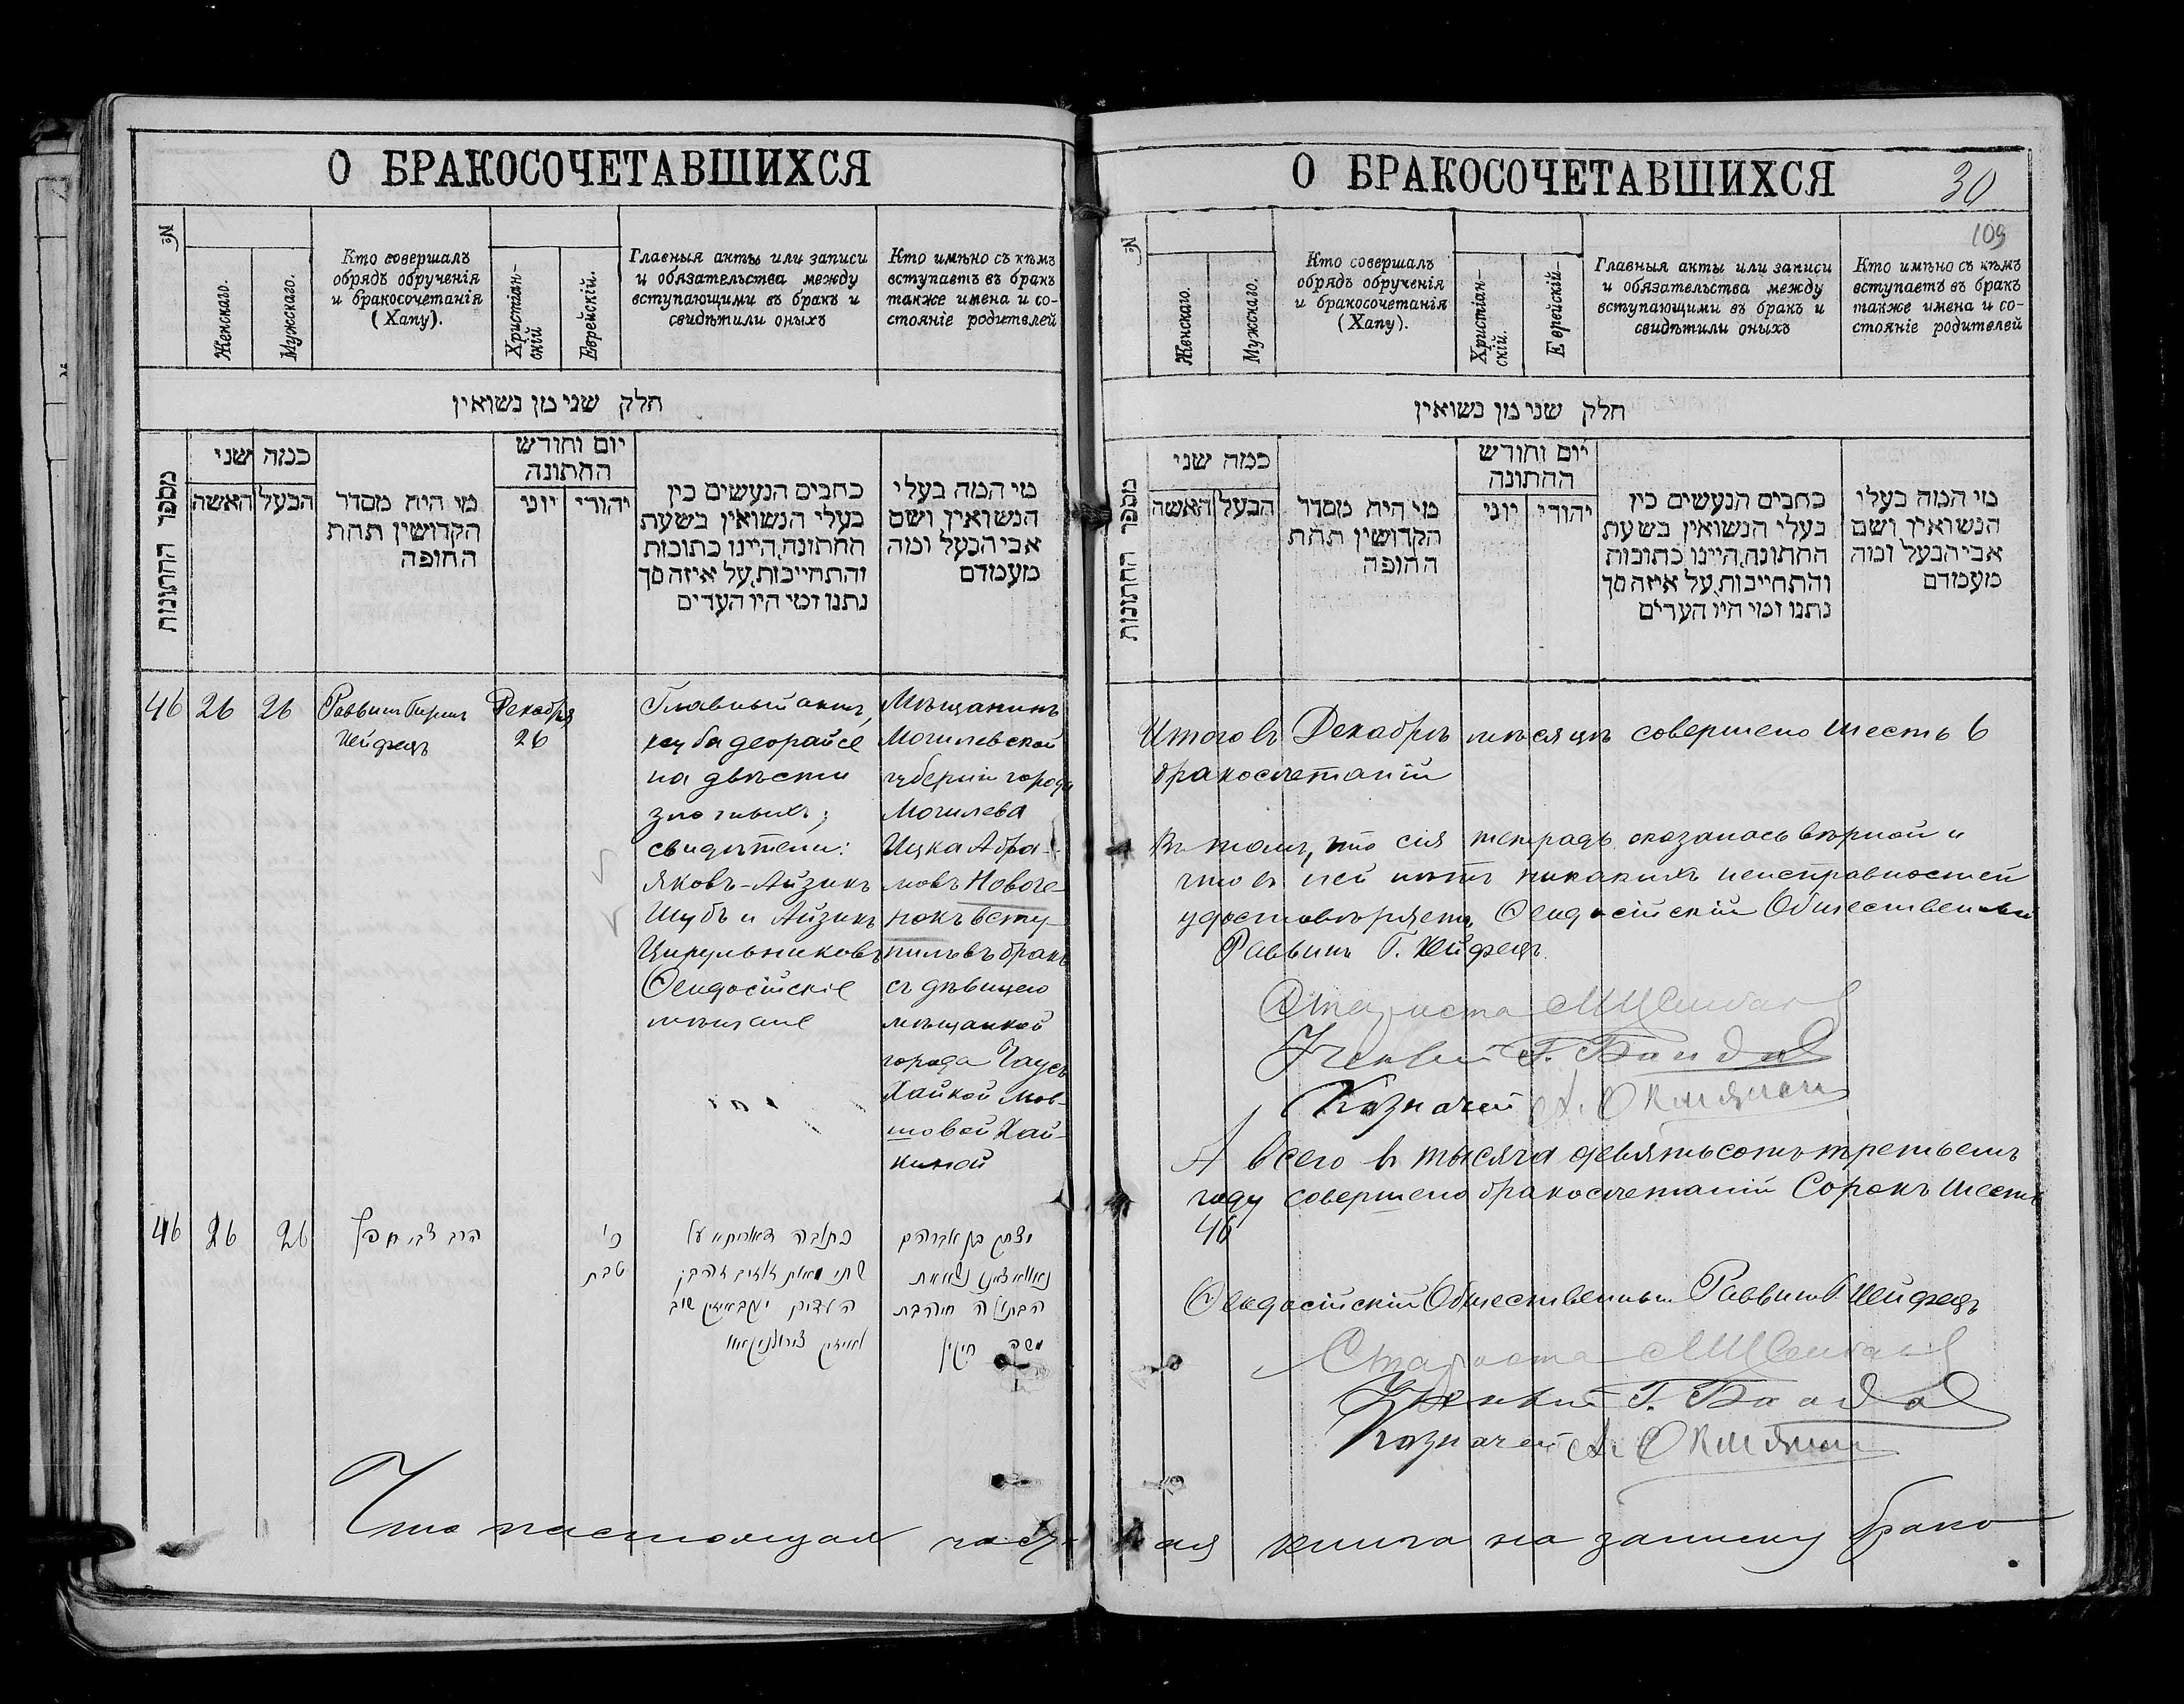 О БРАКОСОЧЕТАВШИХСЯ
№
Женскаго.
Мужскаго.
Кто совершалъ
обрядъ обрученія
и бракосочетанія
(Хапу).
Христіан-
скій
Еврейскій.
Главныя акты или записи
и обязательства между
вступающими въ бракъ и
свидѣтили оныхъ
Кто имѣно съ кѣмъ
вступаетъ въ бракъ
также имена и со-
стояніе родителей
חלק שני מן נשואין
מספר החתונות
כמה שני
האשה
הבעל
מי היה מסדר
הקדושין תחת
החופה
יום וחורש
החתונה
יוני
יהודי
כתבים הנעשים בין
בעלי הנשואין בשעת
החתונה, היינו כתובות
והתחייבות, על איזה סך
נתנו ומי היו העדים
מי המה בעלי
הנשואין ושם
אבי הבעל ומה
מעמדם
46 26 26
Раввинъ Гиршъ
Шейфецъ
Декабря
26
Главный актъ,
на двѣсти
злотныхъ;
свидѣтели:
Яковъ-Айзикъ
Шубъ и Айзикъ
Цирульниковъ
Ѳеодосійскіе
мѣщане
Мѣщанинъ
Могилевской
губерніи города
Могилева
Ицка Абра-
мовъ Новоче-
нокъ всту-
пилъ въ бракъ
съ дѣвицею
мѣщанкой
города Чаусъ
Хайкой Мов-
шовой Хай-
киной
46 26 26
הרב צבי חפץ
כ'
טבת
כתובה דאורייתא על
שתי מאות זלאטי
העדים יעקב אייזיק שוב
ואייזיק צירולניקאוו
יצחק בן אברהם
הבתולה חי' בת
משה חייקין
Что настоящая
О БРАКОСОЧЕТАВШИХСЯ
30
109
№
Женскаго.
Мужскаго.
Кто совершалъ
обрядъ обрученія
и бракосочетанія
(Хапу).
Христіан-
скій.
Еврейскій-
Главныя акты или записи
и обязательства между
вступающими въ бракъ и
свидѣтили оныхъ
Кто имѣно съ кѣмъ
вступаетъ въ бракъ
также имена и со-
стояніе родителей
חלק שני מן נשואין
מספר החתונות
כמה שני
האשה
הבעל
מי היה מסדר
הקדושין תחת
החופה
יום וחורש
החתונה
יוני
יהודי
כתבים הנעשים בין
בעלי הנשואין בשעת
החתונה, היינו כתובות
והתחייבות, על איזה סך
נתנו ומי היו העדים
מי המה בעלי
הנשואין ושם
אבי הבעל ומה
מעמדם
Итого въ Декабрѣ мѣсяцѣ совершено шесть 6
бракосочетаній
Въ томъ, что сія тетрадь оказалась вѣрной и
что въ ней нѣтъ никакихъ неисправностей
удостовѣряетъ Ѳеодосійскій Общественный
Раввинъ Г. Шейфецъ.
Староста
Ученый Г. Бандас
Казначей
А всего въ тысяча девятьсотъ третьемъ
году совершено бракосочетаній Сорокъ шесть
46
Ѳеодосійскій Общественный Раввинъ Г. Шейфецъ
Староста
Ученый Г. Бандас
Казначей
книга на записку брако-